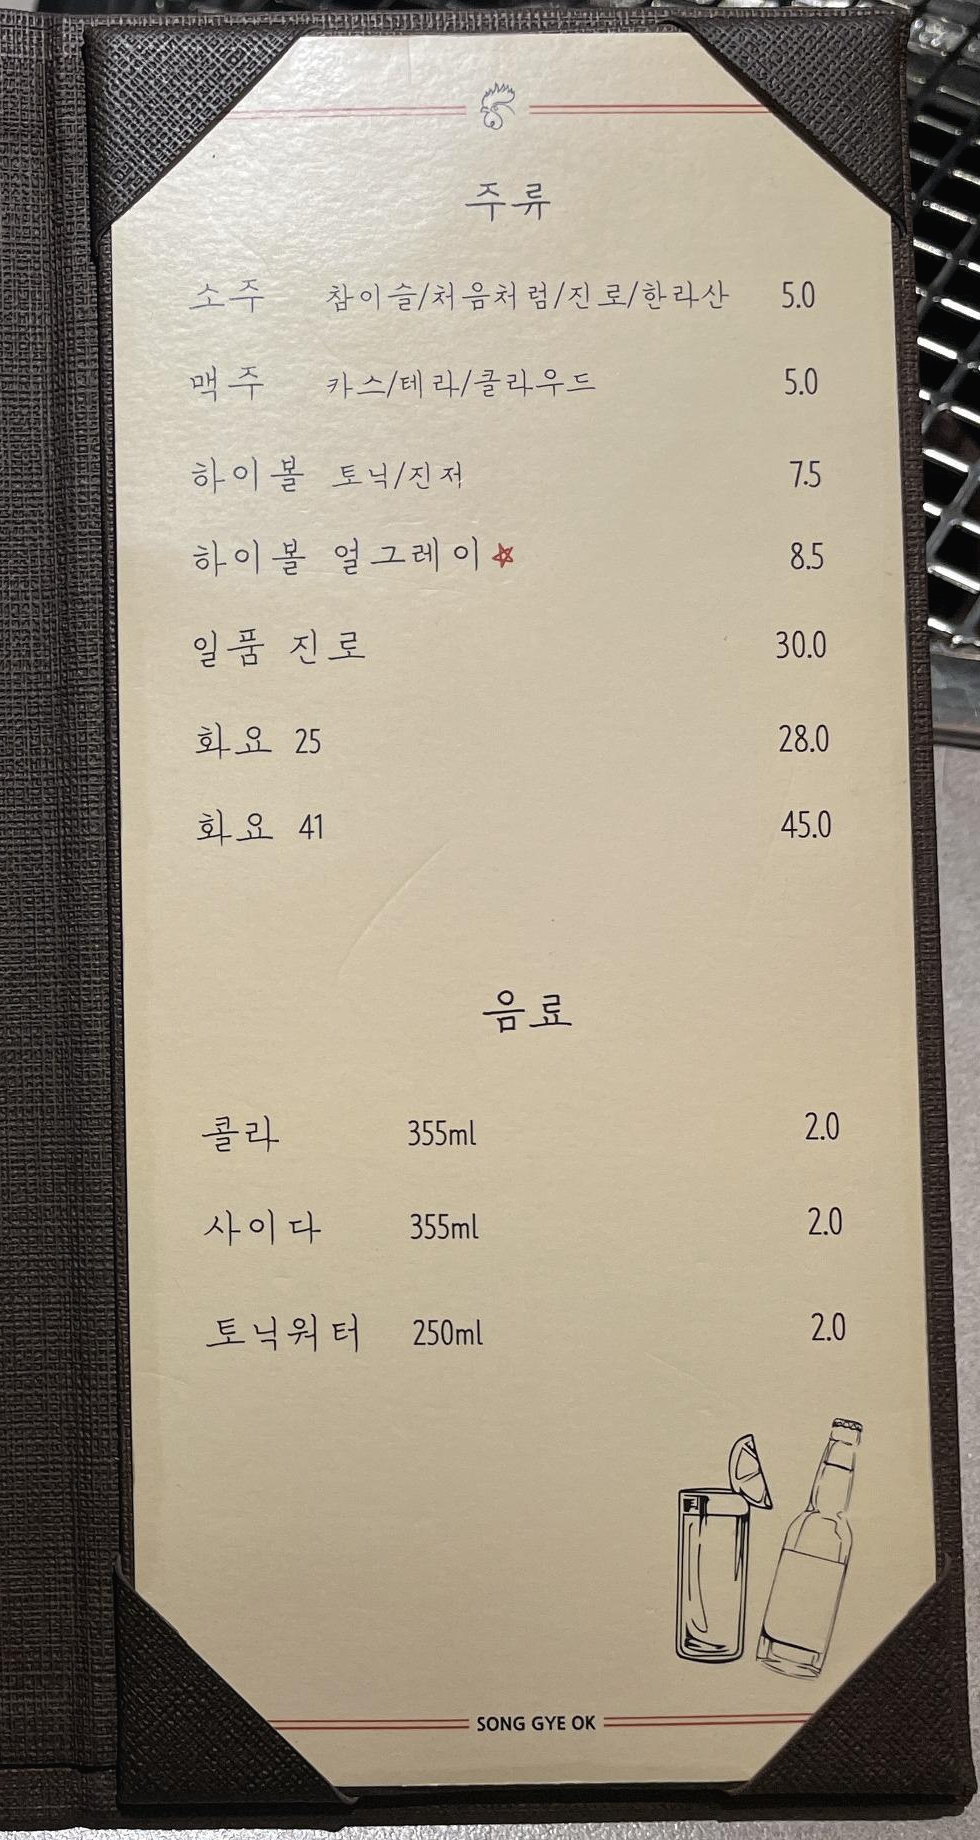 주류
소주 참이슬/처음처럼/진로/한라산 5.0
맥주 카스/테라/클라우드 5.0
하이볼 토닉/진저 7.5
하이볼 얼그레이 8.5
일품 진로 30.0
화요 25 28.0
화요 41 45.0
음료
콜라 355ml 2.0
사이다 355ml 2.0
토닉워터 250ml 2.0
SONG GYE OK